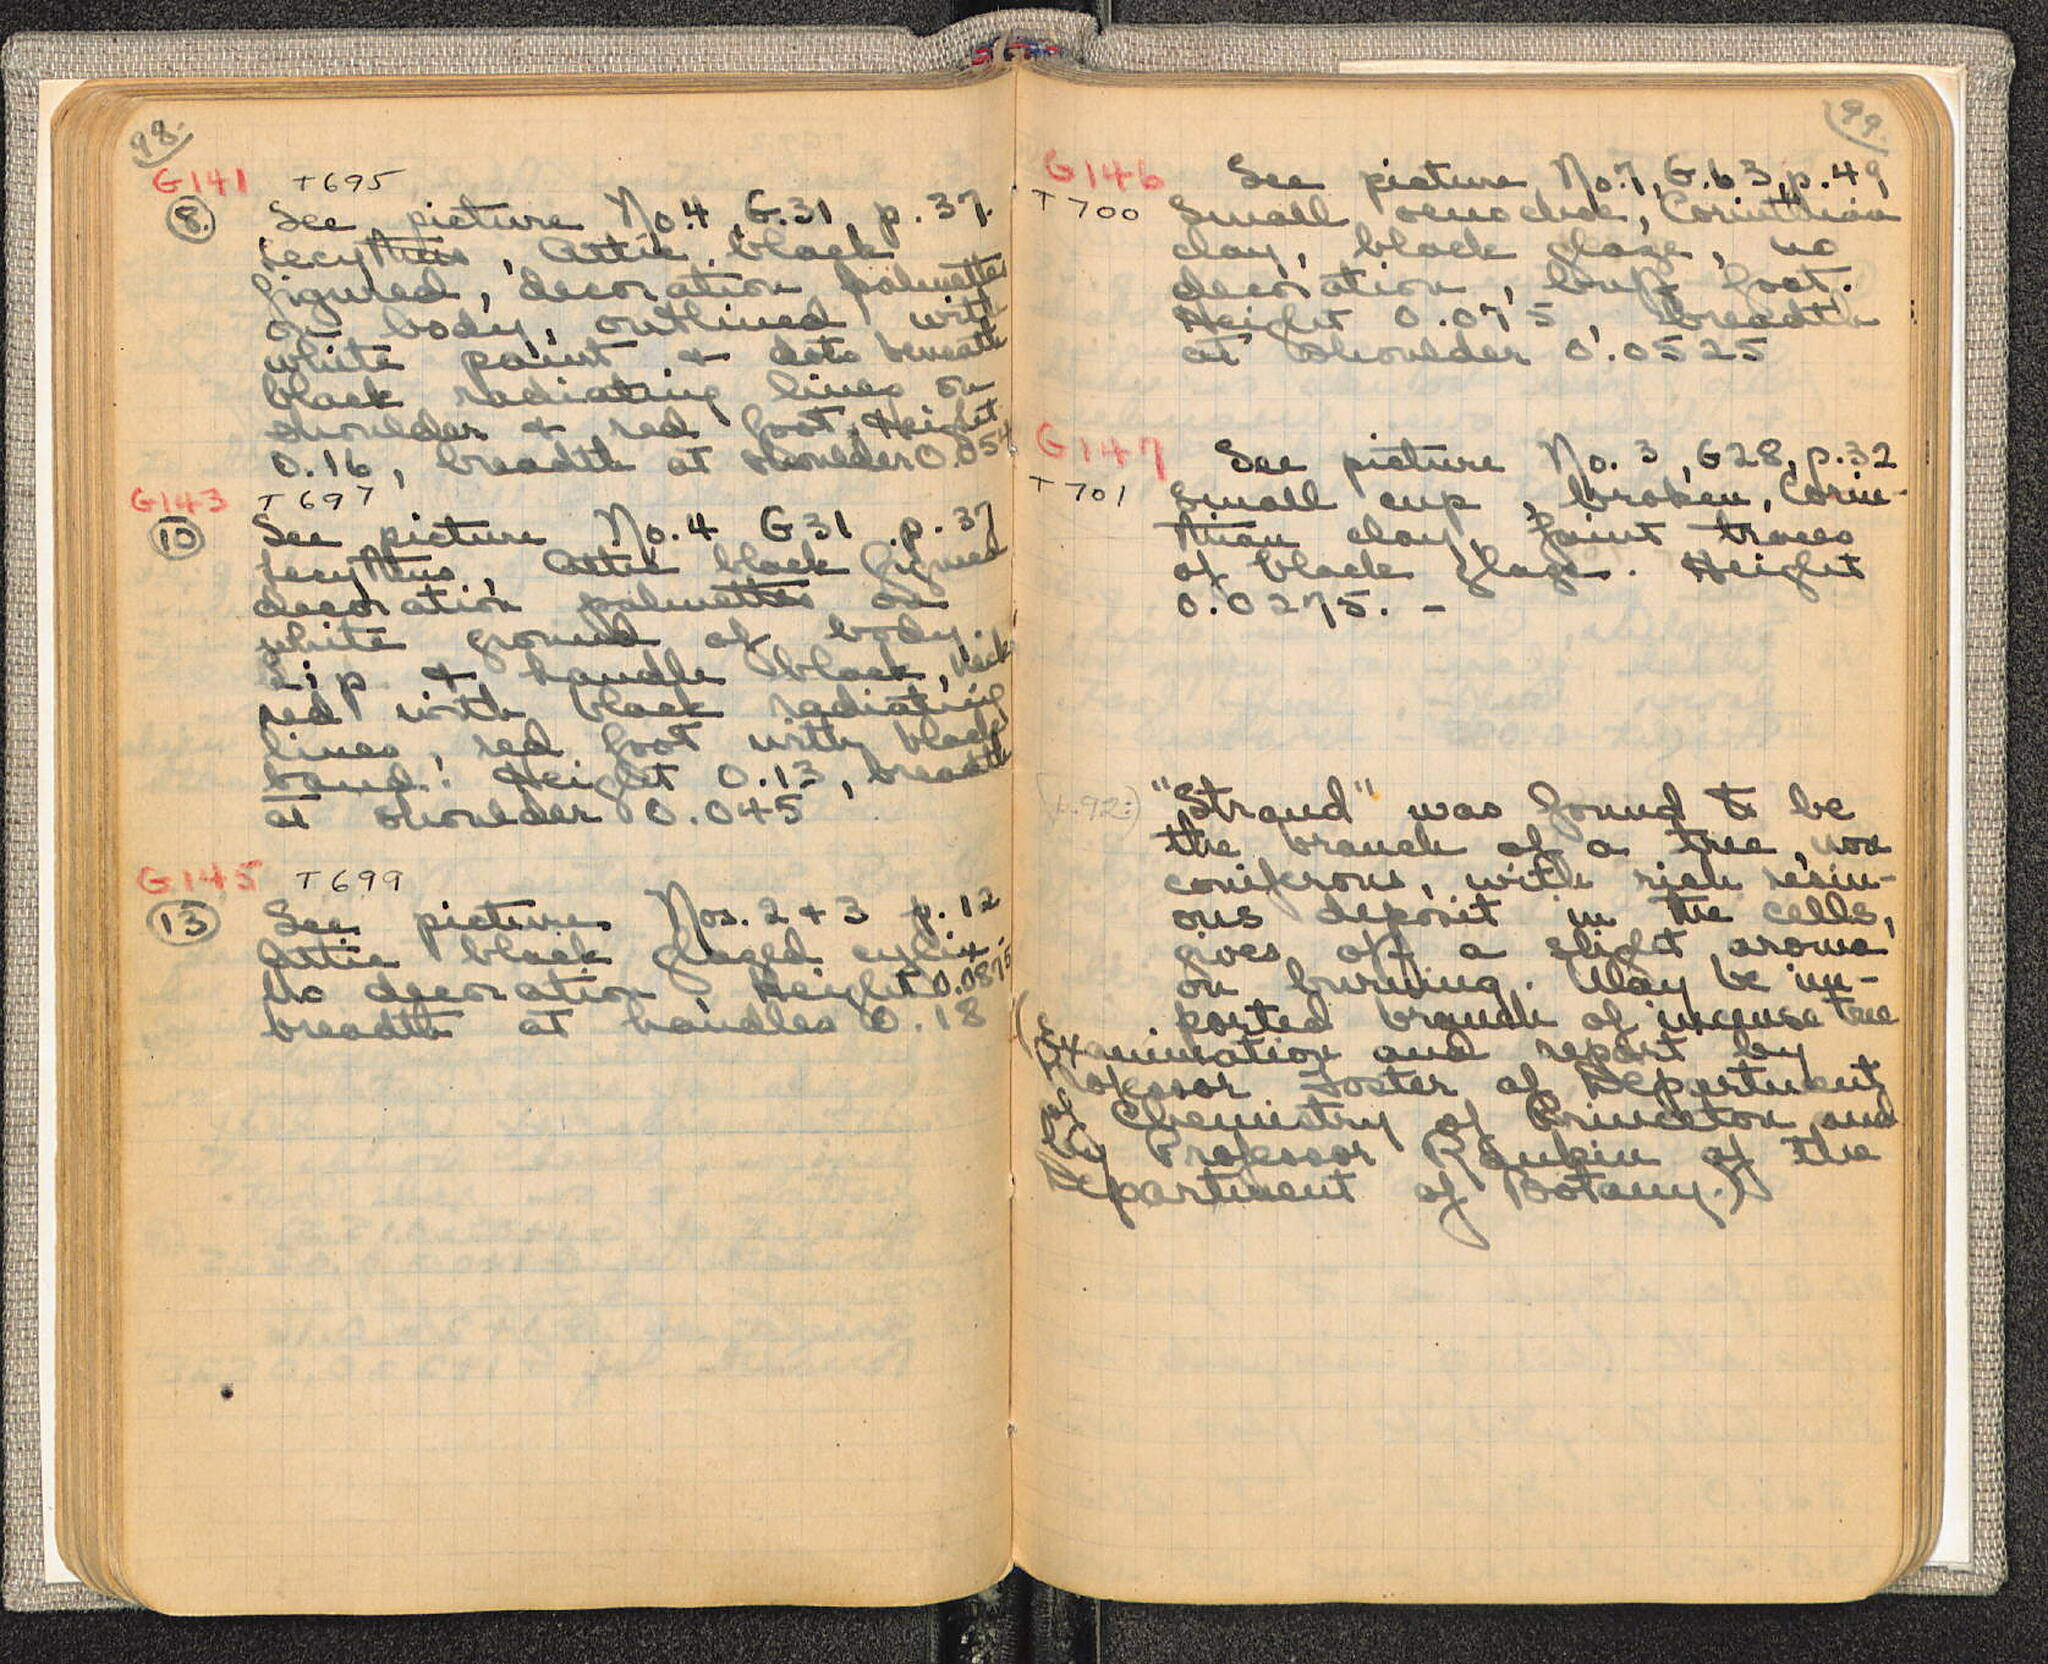 98.
G141 T695
8. See picture No.4, G.31, p.37.
Lecythus, Attic black
figured, decoration palmettes
on body, outlined with
white paint & dots beneath
black radiating lines on
shoulder & red foot. Height
0.16, breadth at shoulder 0.054
G143 T697
10 See picture No.4 G31 p.37
Lecythus, Attic black figured
decoration palmettes on
white ground of body.
Lip & handle black, neck
red with black radiating
lines, red foot with black
band. Height 0.13, breadth
at shoulder 0.045
G145 T699
13 See picture Nos. 2 & 3 p. 12
Attic black glazed cylix.
No decoration, Height 0.0875
breadth at handles 0.18
99.
G146 See picture No.7, G.63, p.49
T700 Small oenochoe, Corinthian
clay, black glaze, no
decoration, buff foot.
Height 0.075, Breadth
at shoulder 0.0525
G147 See picture No. 3, G28, p.32
T701 Small cup, broken, Corin-
thian clay, faint traces
of black glaze. Height
0.0275. -
(p.92:) "Strand" was found to be
the branch of a tree, non
coniferous, with rich resin-
ous deposit in the cells,
gives off a slight aroma
on burning. May be im-
ported branch of incense tree
(Examination and report by
Professor Foster of Department
of Chemistry of Princeton and
by Professor Rankin of the
Department of Botany.)